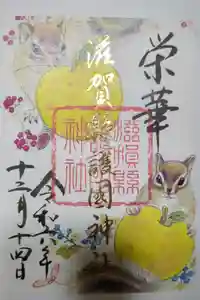 栄華
滋賀縣護國神社
滋賀縣護國神社
令和六年
十二月十四日